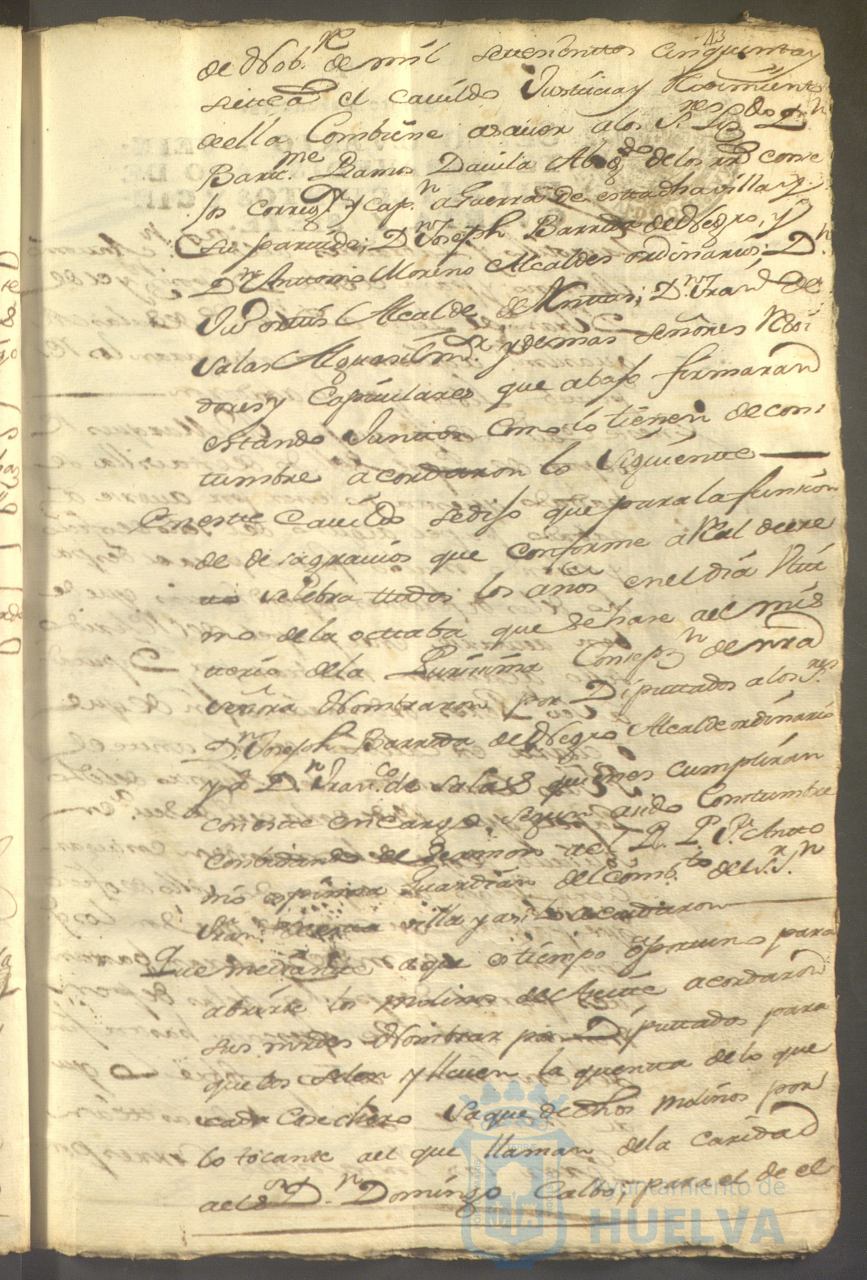 13
de Nob.re de mil setezientos cinquenta y
siete a el cavildo Justicia y Reximiento
de ella Combiene a saver a los S.res Liz.do D.n
Bart.me Ramos Davila Abog.do de los R.s conse
jos Correg.r y cap.n a Guerra de esta dha villa y
su partido; D.n Joseph Barrida de Negro, y
D.n Antonio Moreno Alcaldes ordinarios; D.n
Alcalde de D.n Fran.co de
Salas Alguasil m.r y demas señores Rexi
dores y Capitulares que abajo firmaran
estando Juntos Como lo tienen de cos
tumbre acordaron lo siguiente
En este Cavildo se dijo que para la funsion
de desagravios que conforme a Real decre
to se selebra ttodos los años en el dia
mo de la octtaba que se hase al mis
terio de la Purisima Consep.n de nra
señora Nombraron por Diputtados a los S.res
D.n Joseph Barrida de Negro Alcalde ordinario
y a D.n Fran.co de Salas quienes cumpliran
con este encargo, segun a sido Costumbre
Combidando de Sermon al R. P. Fr. Anto
nio Guardian del Comb.to del S.r S.n
Fran.co de esta villa y asi lo acordaron
Que mediante a que es tiempo oportuno para
abrirse los molinos de Aseite acordaron
sus mrdes Nombrar por Diputtados para
que los selen y lleven la quenta de lo que
cada Cosechero saque de dhos molinos por
lo tocante a el que llaman de la caridad
a el S.or D.n Domingo Calbo, y para el de el
Ayuntamiento de
HUELVA